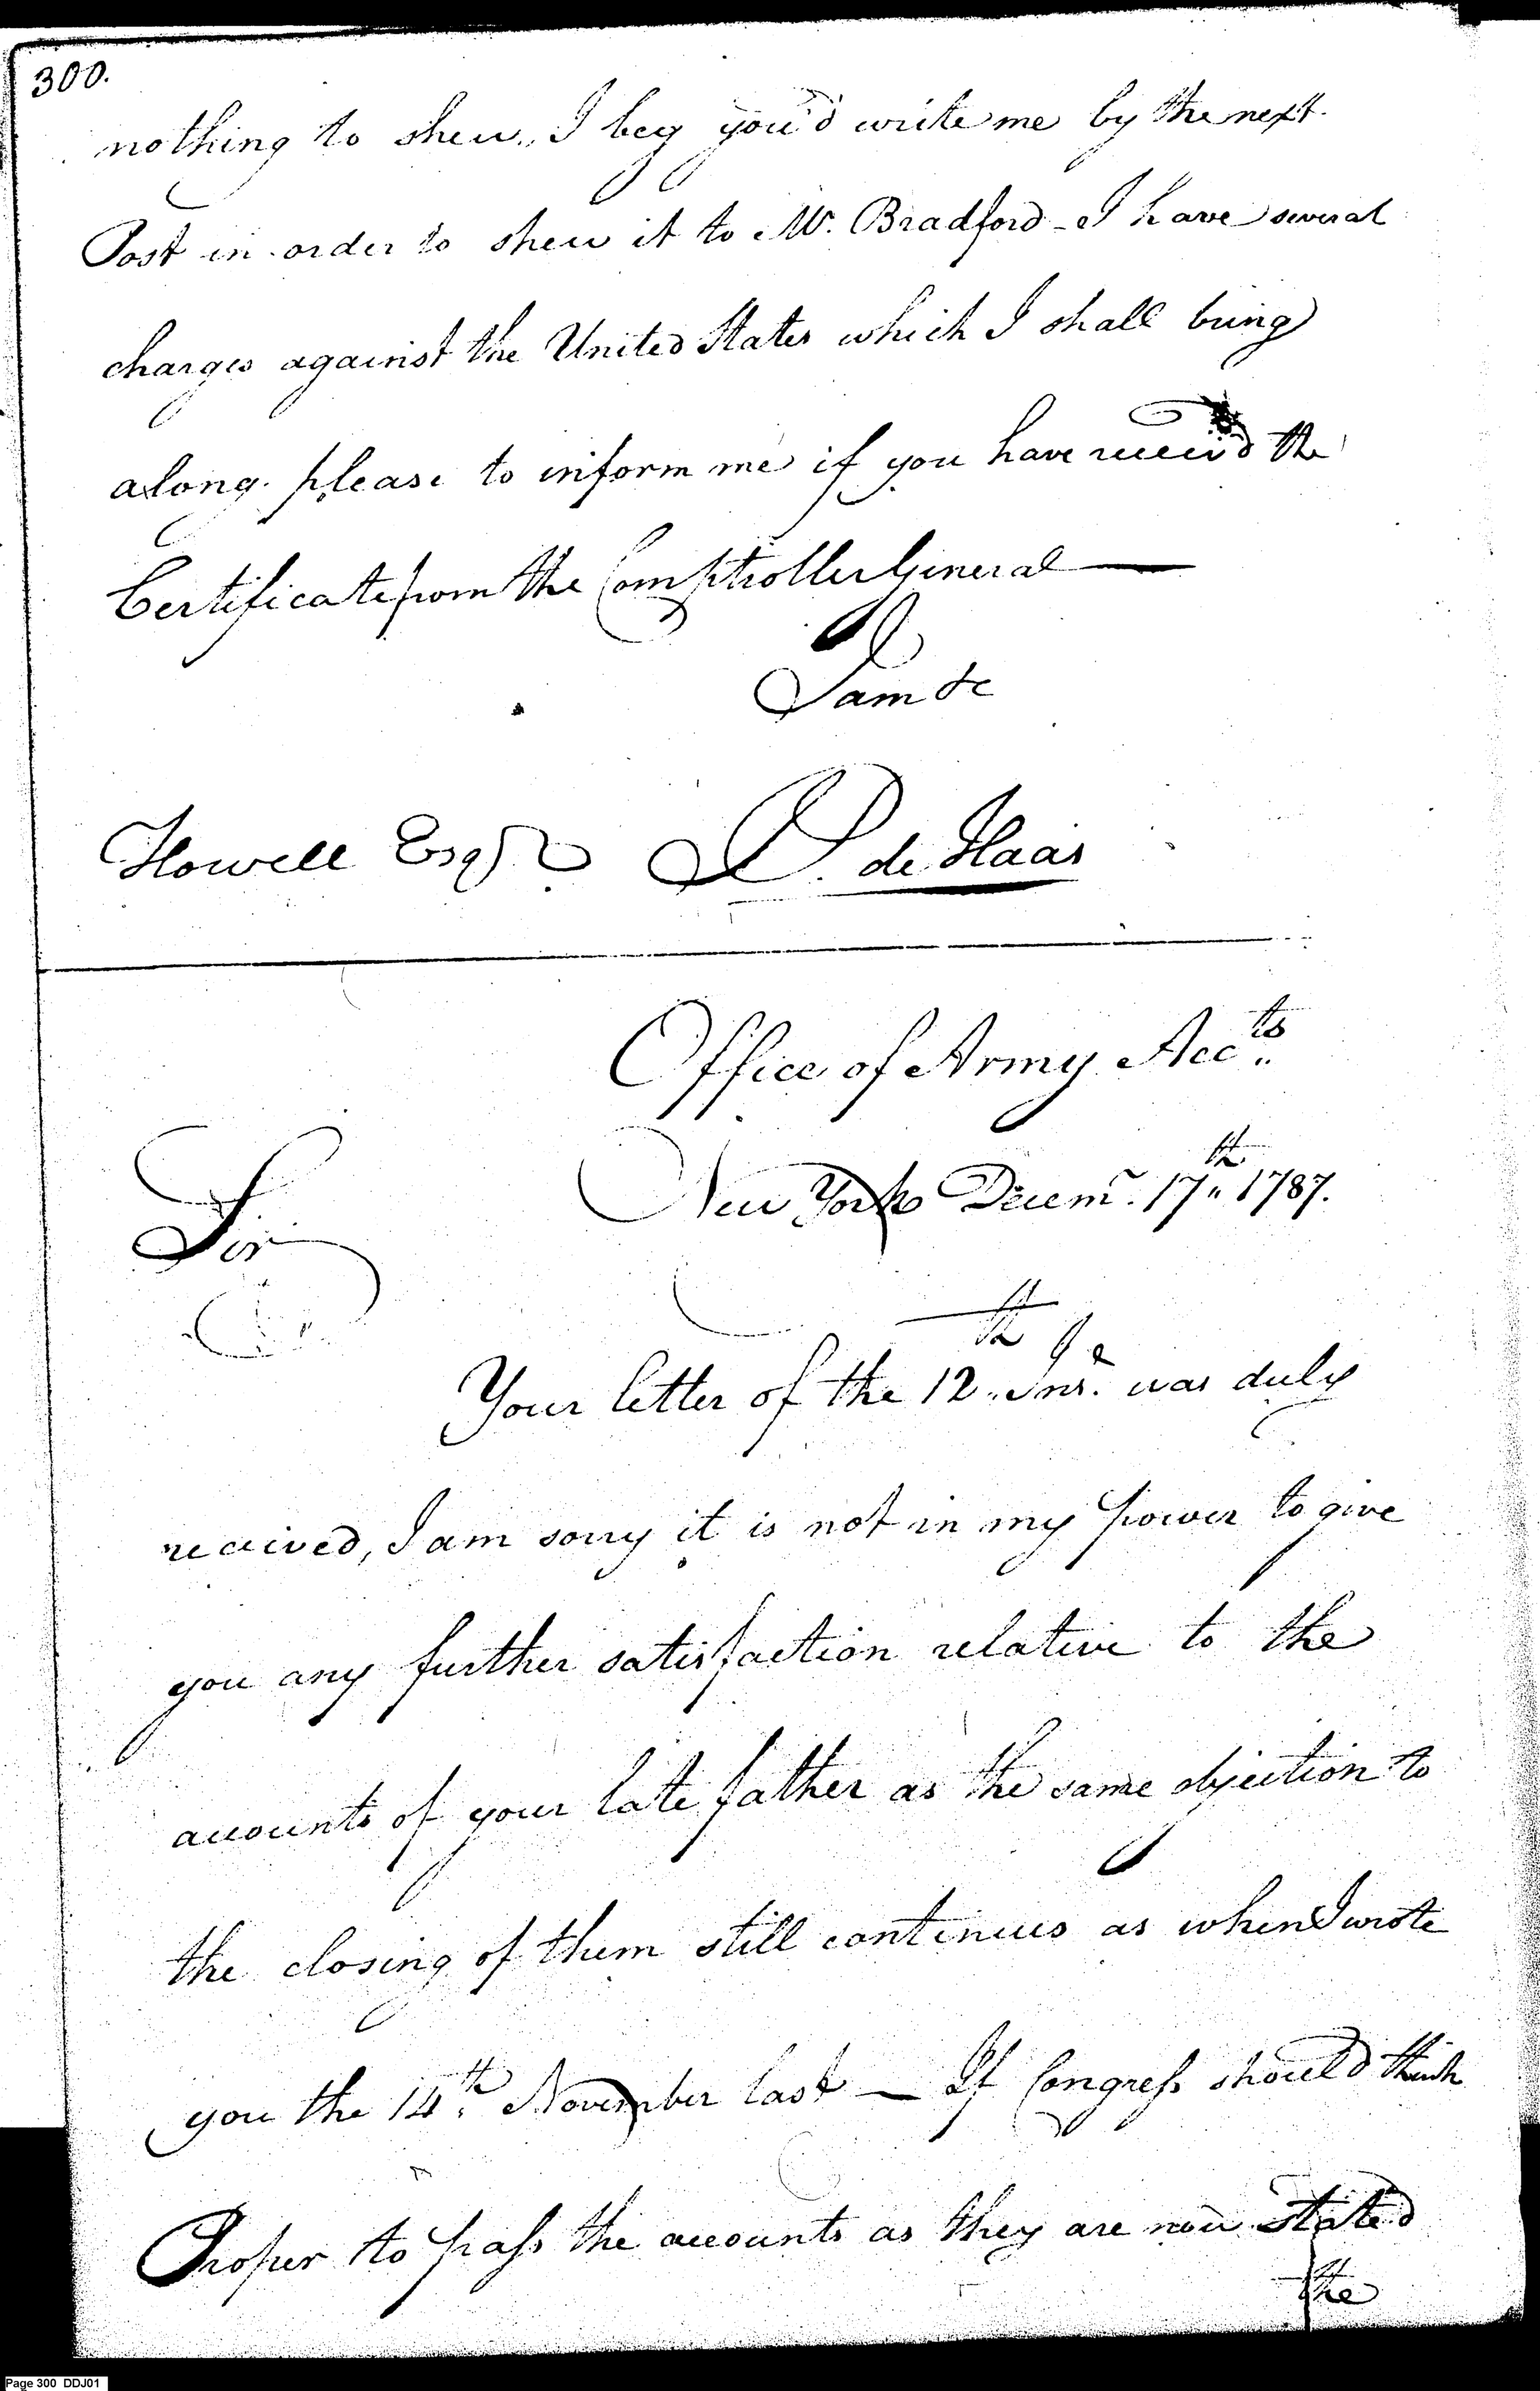 300.
nothing to shew, I beg you'd write me by the next
Post in order to shew it to Mr. Bradford - I have several
charges against the United States which I shall bring
along. please to inform me if you have receiv'd the
Certificate from the Comptroller General —
I am &c
Howell Esqr. P. de Haas
Office of Army Accts
New York Decemr. 17th 1787.
Sir
Your letter of the 12th Inst. was duly
received, I am sorry it is not in my power to give
you any further satisfaction relative to the
accounts of your late father as the same objection to
the closing of them still continues as when I wrote
you the 14th November last — If Congress should think
Proper to pass the accounts as they are now stated
the
Page 300 DDJ01